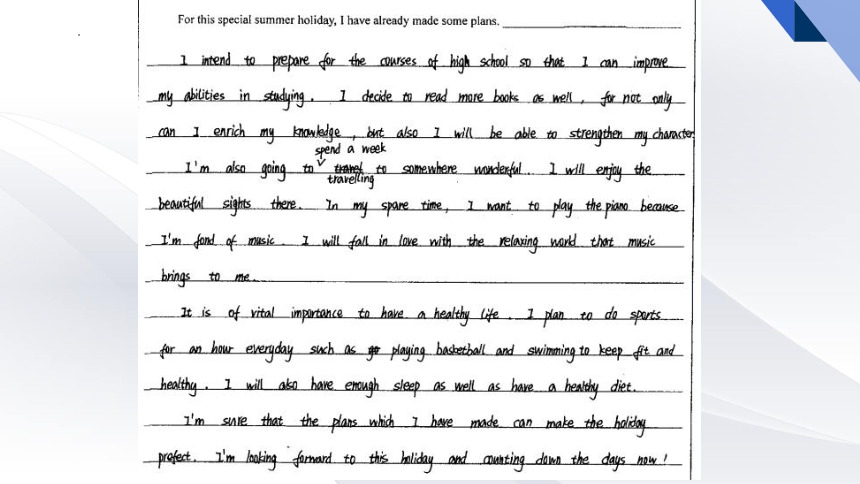 For this special summer holiday, I have already made some plans.
I intend to prepare for the courses of high school so that I can improve
my abilities in studying. I decide to read more books as well, for not only
can I enrich my knowledge, but also I will be able to strengthen my character
spend a week
I'm also going to travel to somewhere wonderful. I will enjoy the
travelling
beautiful sights there. In my spare time, I want to play the piano because
I'm fond of music. I will fall in love with the relaxing world that music
brings to me.
It is of vital importance to have a healthy life. I plan to do sports
for an hour everyday such as go playing basketball and swimming to keep fit and
healthy. I will also have enough sleep as well as have a healthy diet.
I'm sure that the plans which I have made can make the holiday
profect. I'm looking forward to this holiday and counting down the days now!